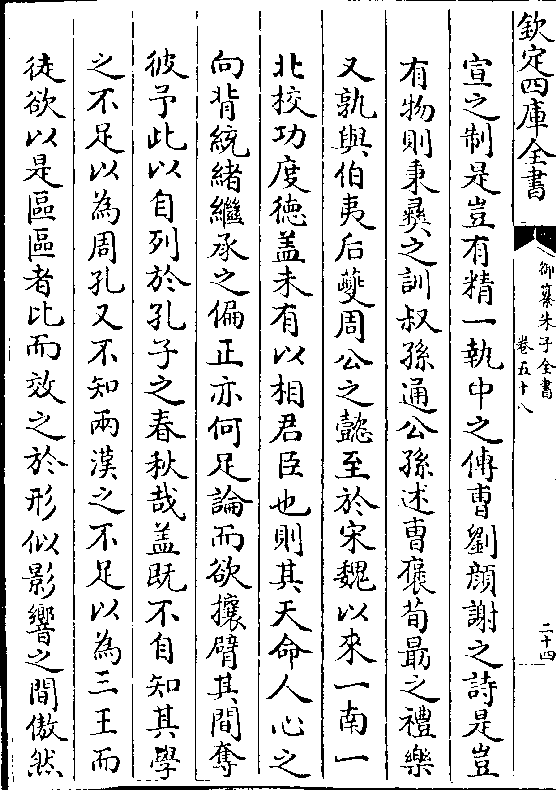 欽定四庫全書
御纂朱子全書
卷五十八
二十四
宣之制是豈有精一執中之傳曹劉顏謝之詩是豈
有物則秉彝之訓叔孫通公孫述曹襃荀勗之禮樂
又孰與伯夷后夔周公之懿至於宋魏以來一南一
北校功度德盖未有以相君臣也則其天命人心之
向背統緒繼承之偏正亦何足論而欲攘臂其間奪
彼予此以自列於孔子之春秋哉盖既不自知其學
之不足以為周孔又不知兩漢之不足以為三王而
徒欲以是區區者比而效之於形似影響之間傲然